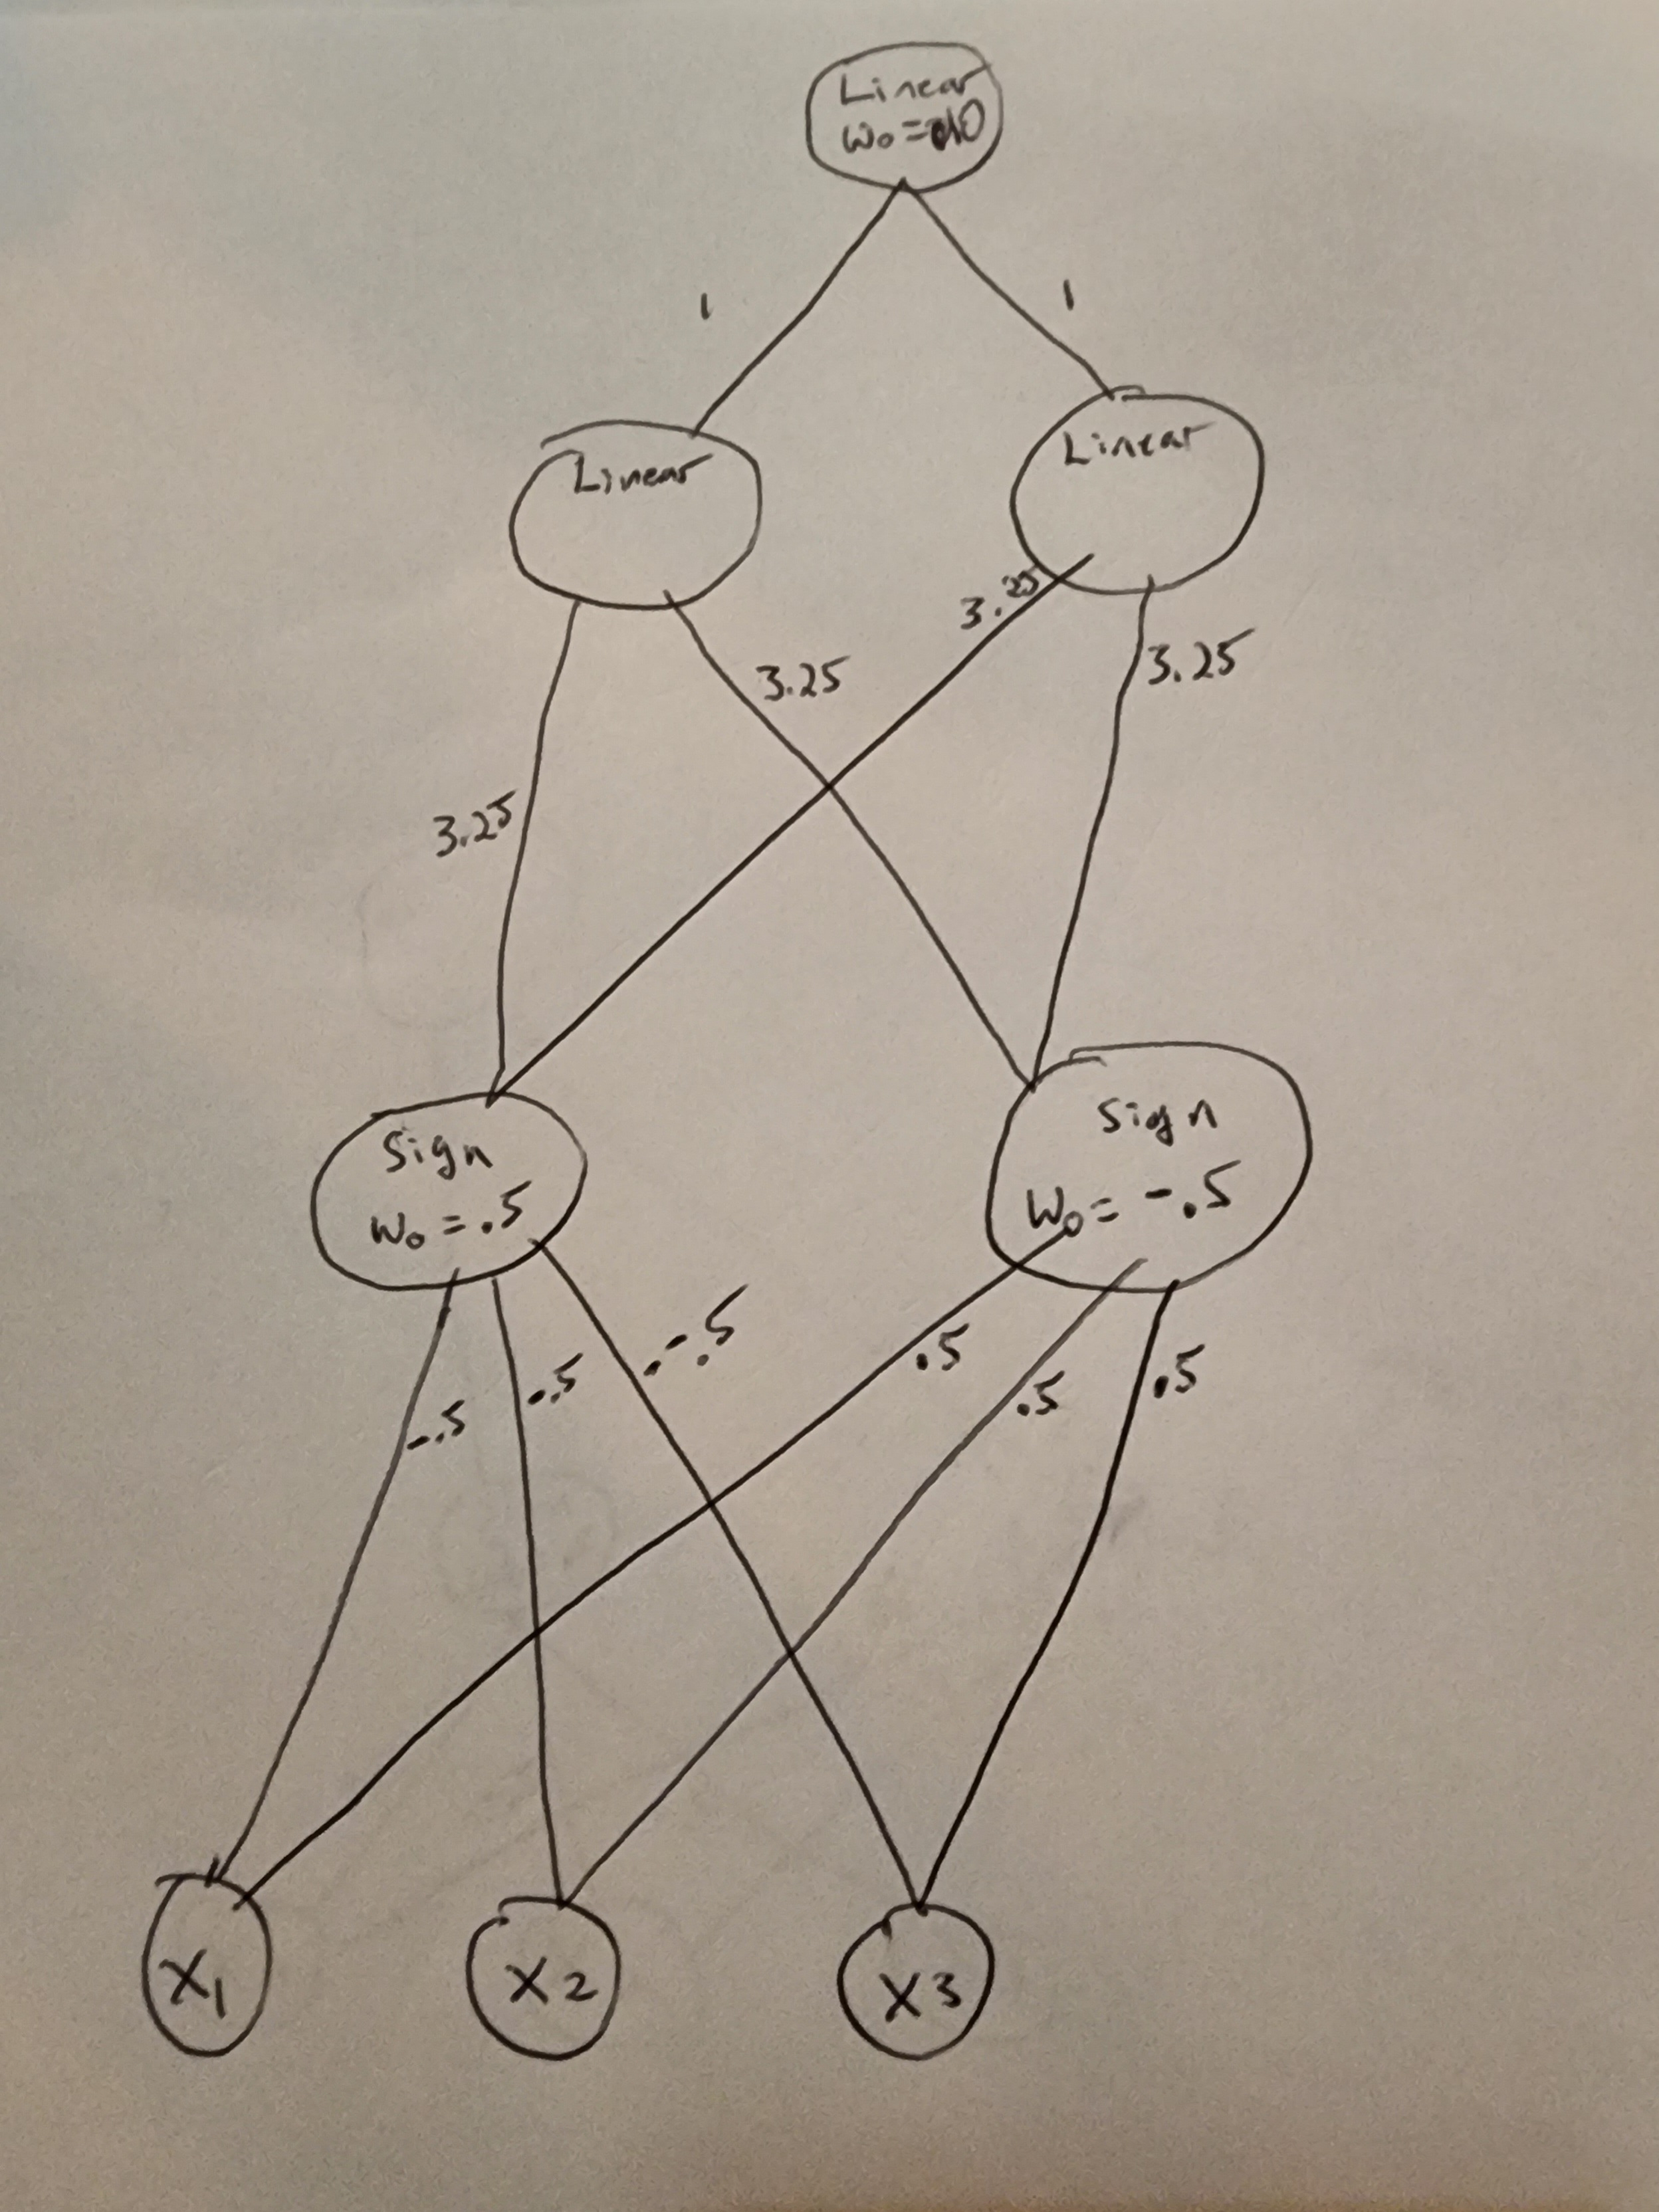 Linear
w₀=10
1
1
Linear
Linear
3.25
3.25
3.25
3.25
Sign
w₀=.5
Sign
w₀=-.5
-.5
-.5
-.5
.5
.5
.5
X₁
X2
X3